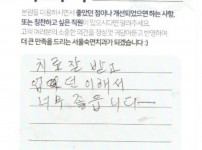 분원을 이용하시면서 좋았던 점이나 개선되었으면 하는 사항,
또는 칭찬하고 싶은 직원이 있으시다면 말씀해주세요.
고객 여러분의 소중한 의견을 귀담아 듣고 반영하여
더 큰 만족을 드리는 서울숙면치과가 되겠습니다 :)
치료 잘 받고
던 이래서
너무 좋습니다